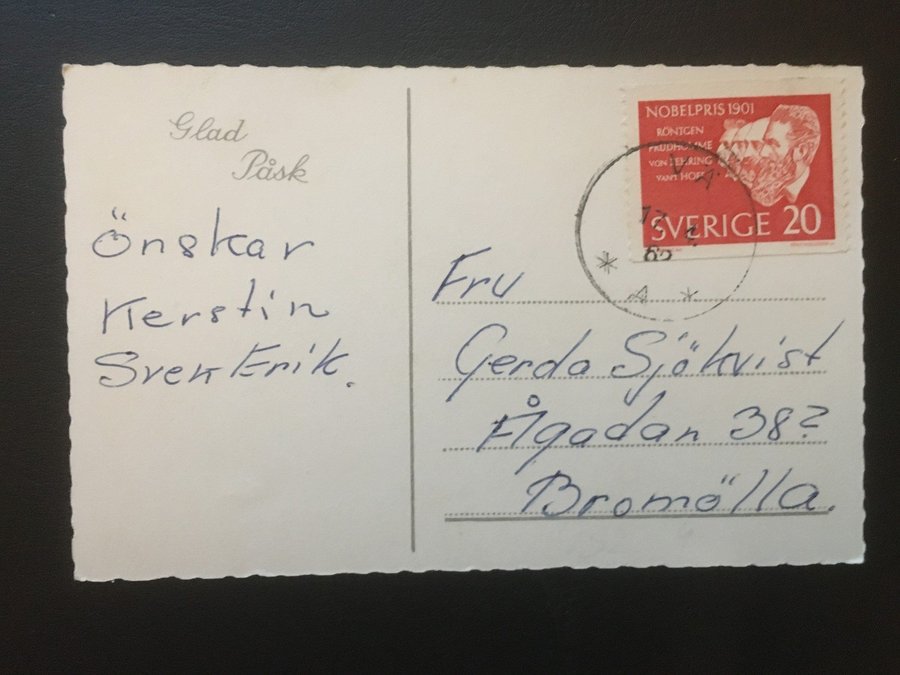 Glad
Påsk
Önskar
Kerstin
Sven Erik.
NOBELPRIS 1901
RÖNTGEN
PRUDHOMME
VON BEHRING
VAN'T HOFF
SVERIGE 20
VÄ
17
62
A
Fru
Gerda Sjökvist
Ågadan 38?
Bromölla.